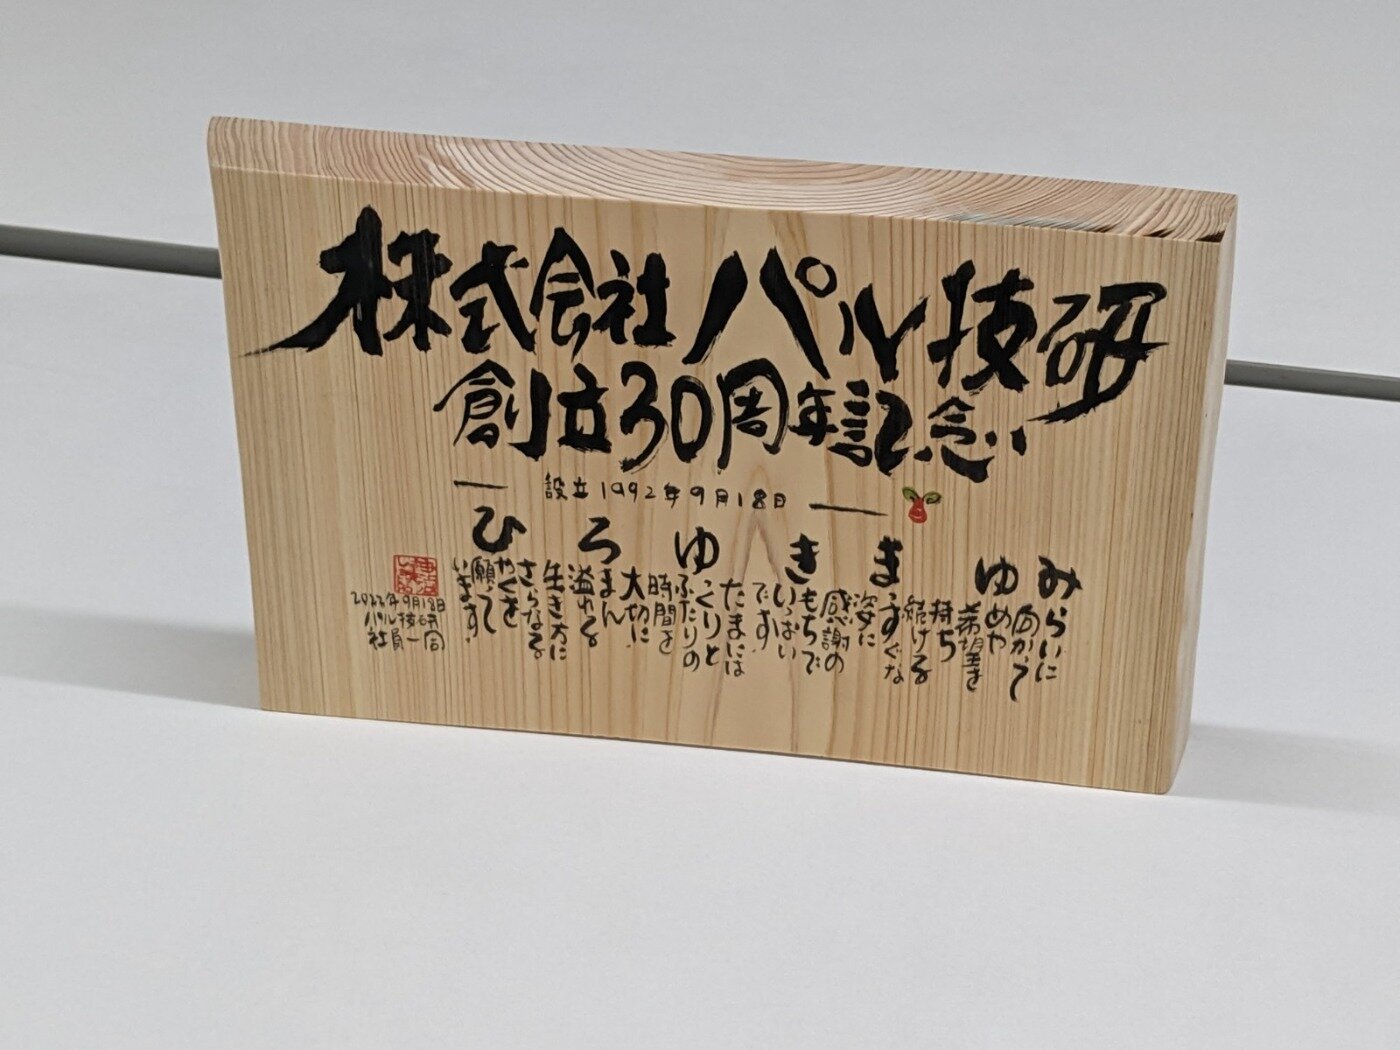 株式会社パル技研
創立30周年記念
設立1992年9月18日
みらいに
向かって
ゆめや
希望を
持ち
続ける
まっすぐな
姿に
感謝の
きもちで
いっぱい
です
たまには
ゆっくりと
ふたりの
時間を
大切に
ろまん
溢れる
生き方に
さらなる
ひやくを
願って
います
2022年9月18日
パル技研
社員一同